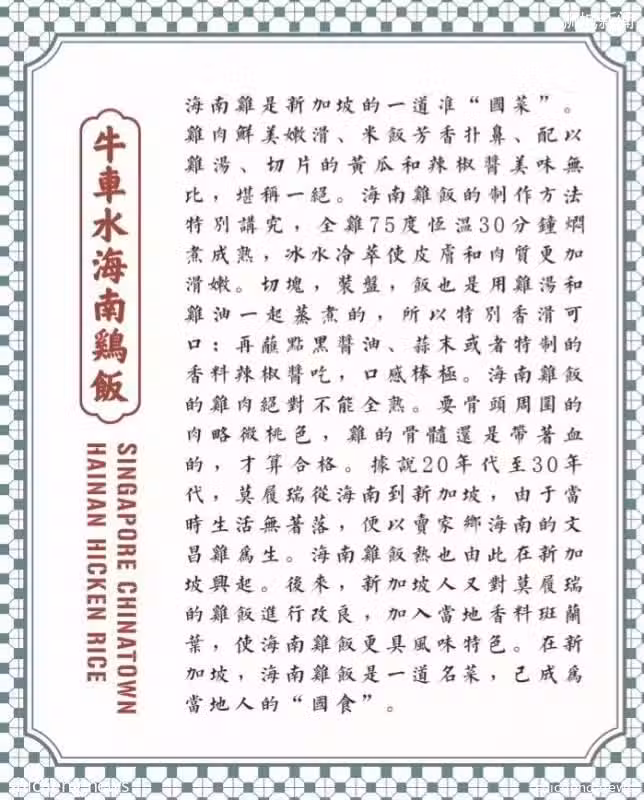 牛車水海南鷄飯
SINGAPORE CHINATOWN
HAINAN HICKEN RICE
海南雞是新加坡的一道准“國菜”。
雞肉鮮美嫩滑、米飯芳香扑鼻、配以
雞湯、切片的黃瓜和辣椒醬美味無
比，堪稱一絕。海南雞飯的制作方法
特別講究，全雞75度恆溫30分鐘燜
煮成熟，冰水冷萃使皮膚和肉質更加
滑嫩。切塊，裝盤，飯也是用雞湯和
雞油一起蒸煮的，所以特別香滑可
口：再蘸點黑醬油、蒜末或者特制的
香料辣椒醬吃，口感棒極。海南雞飯
的雞肉絕對不能全熟。要骨頭周圍的
肉略微桃色，雞的骨髓還是帶著血
的，才算合格。據說20年代至30年
代，莫履瑞從海南到新加坡，由于當
時生活無著落，便以賣家鄉海南的文
昌雞爲生。海南雞飯熱也由此在新加
坡興起。後來，新加坡人又對莫履瑞
的雞飯進行改良，加入當地香料斑蘭
葉，使海南雞飯更具風味特色。在新
加坡，海南雞飯是一道名菜，已成爲
當地人的“國食”。